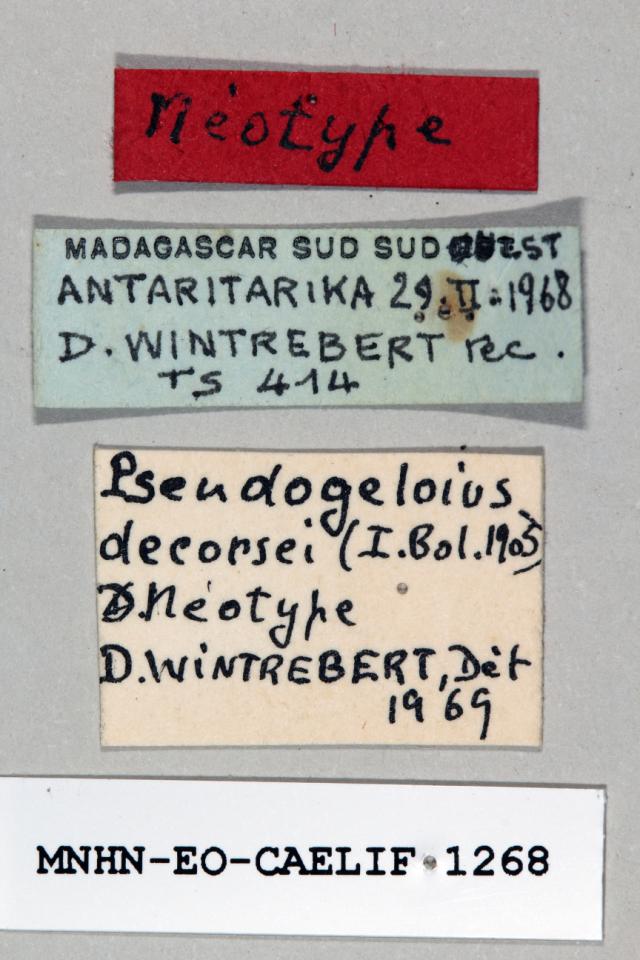 Néotype
MADAGASCAR SUD SUD EST
ANTARITARIKA 29.II.1968
D. WINTREBERT rec.
TS 414
Pseudogeloius
decorsei (I.Bol.1905)
Néotype
D.WINTREBERT, Dét
1969
MNHN-EO-CAELIF 1268